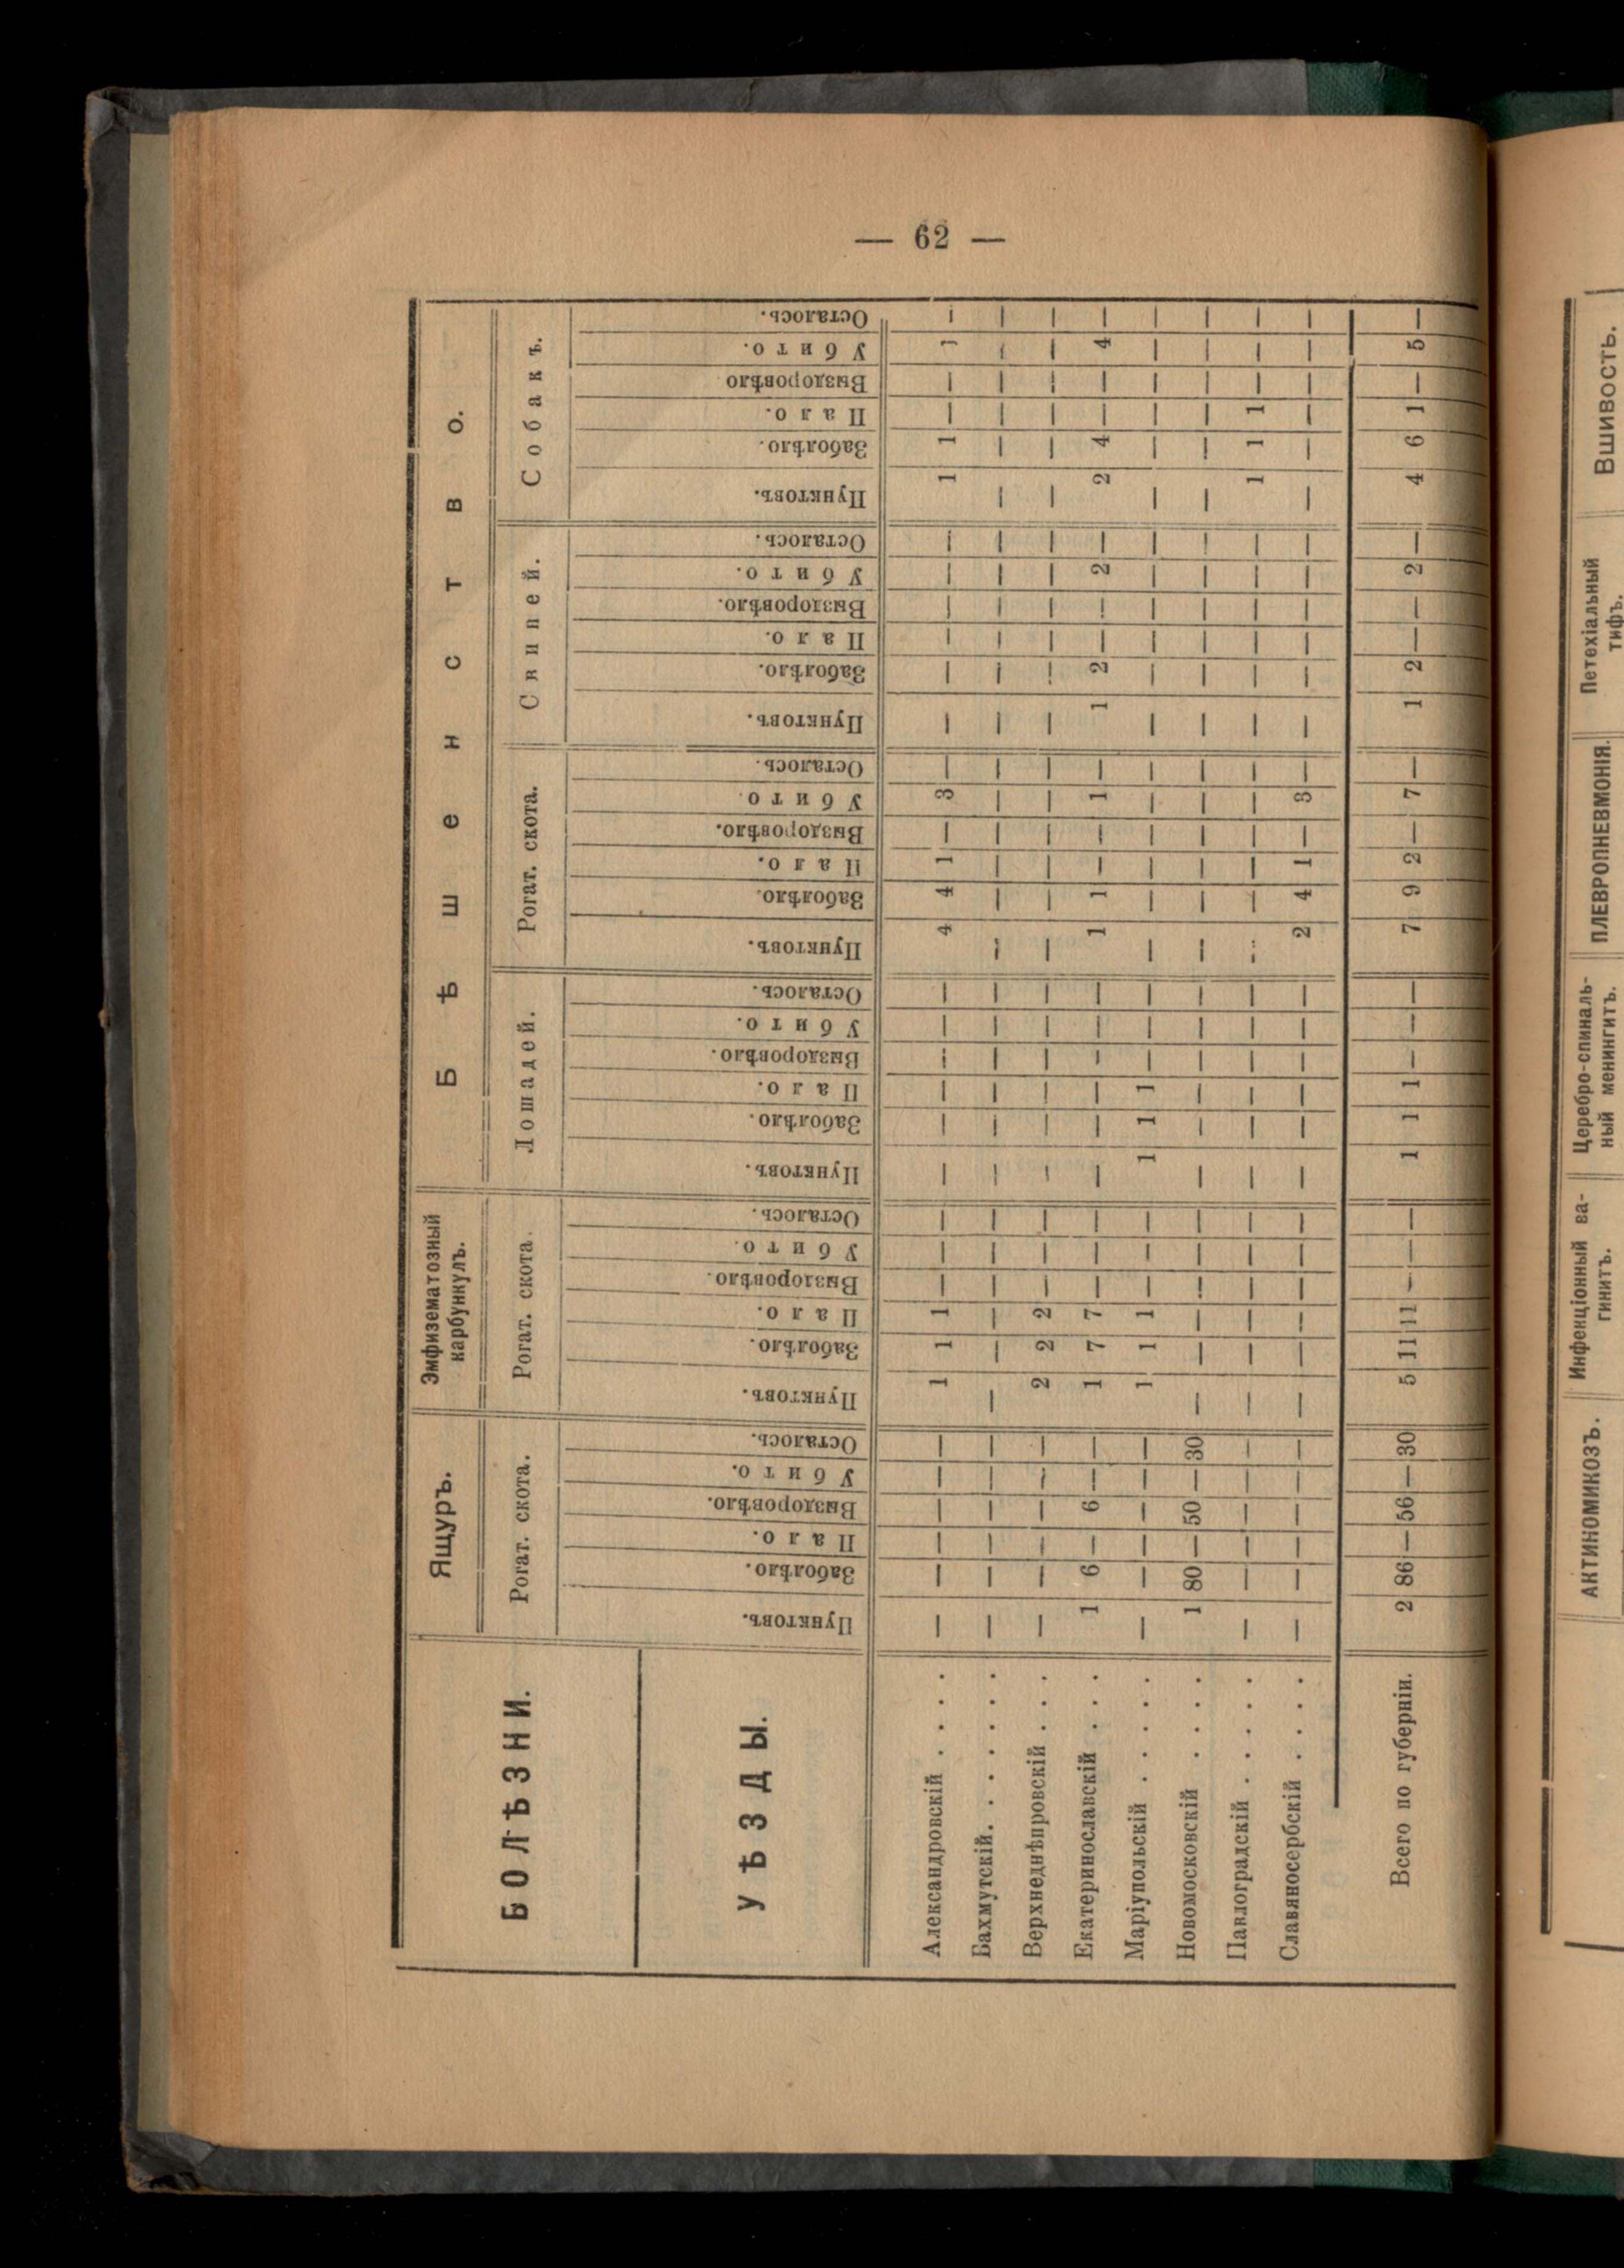 — 62 —
БОЛѢЗНИ.
УѢЗДЫ.
Ящуръ.
Эмфизематозный
карбункулъ.
Бѣшенство.
Рогат. скота.
Рогат. скота.
Лошадей.
Рогат. скота.
Свиней.
Собакъ.
Пунктовъ. Заболѣло. Пало. Выздоровѣло. Убито. Осталось. Пунктовъ. Заболѣло. Пало. Выздоровѣло. Убито. Осталось. Пунктовъ. Заболѣло. Пало. Выздоровѣло. Убито. Осталось. Пунктовъ. Заболѣло. Пало. Выздоровѣло. Убито Осталось. Пунктовъ. Заболѣло. Пало. Выздоровѣло. Убито. Осталось. Пунктовъ. Заболѣло. Пало. Выздоровѣло Убито. Осталось.
Александровскій . . . . — — — — — — 1 1 1 — — — — — — — — — 4 4 1 — 3 — — — — — — — 1 1 — — 1 —
Бахмутскій. . . . . . . — — — — — — — — — — — — — — — — — — — — — — — — — — — — — — — — — — — —
Верхнеднѣпровскій . . . — — — — — — 2 2 2 — — — — — — — — — — — — — — — — — — — — — — — — — — —
Екатеринославскій . . . 1 6 — 6 — — 1 7 7 — — — — — — — — — 1 1 — — 1 — 1 2 — — 2 — 2 4 — — 4 —
Маріупольскій . . . . . — — — — — — 1 1 1 — — — 1 1 1 — — — — — — — — — — — — — — — — — — — — —
Новомосковскій . . . . 1 80 — 50 — 30 — — — — — — — — — — — — — — — — — — — — — — — — — — — — — —
Павлоградскій . . . . . — — — — — — — — — — — — — — — — — — — — — — — — — — — — — — 1 1 1 — — —
Славяносербскій . . . . — — — — — — — — — — — — — — — — — — 2 4 1 — 3 — — — — — — — — — — — — —
Всего по губерніи. 2 86 — 56 — 30 5 11 11 — — — 1 1 1 — — — 7 9 2 — 7 — 1 2 — — 2 — 4 6 1 — 5 —
АКТИНОМИКОЗЪ.
Инфекціонный ва-
гинитъ.
Церебро-спиналь-
ный менингитъ.
ПЛЕВРОПНЕВМОНІЯ.
Петехіальный
тифъ.
Вшивость.